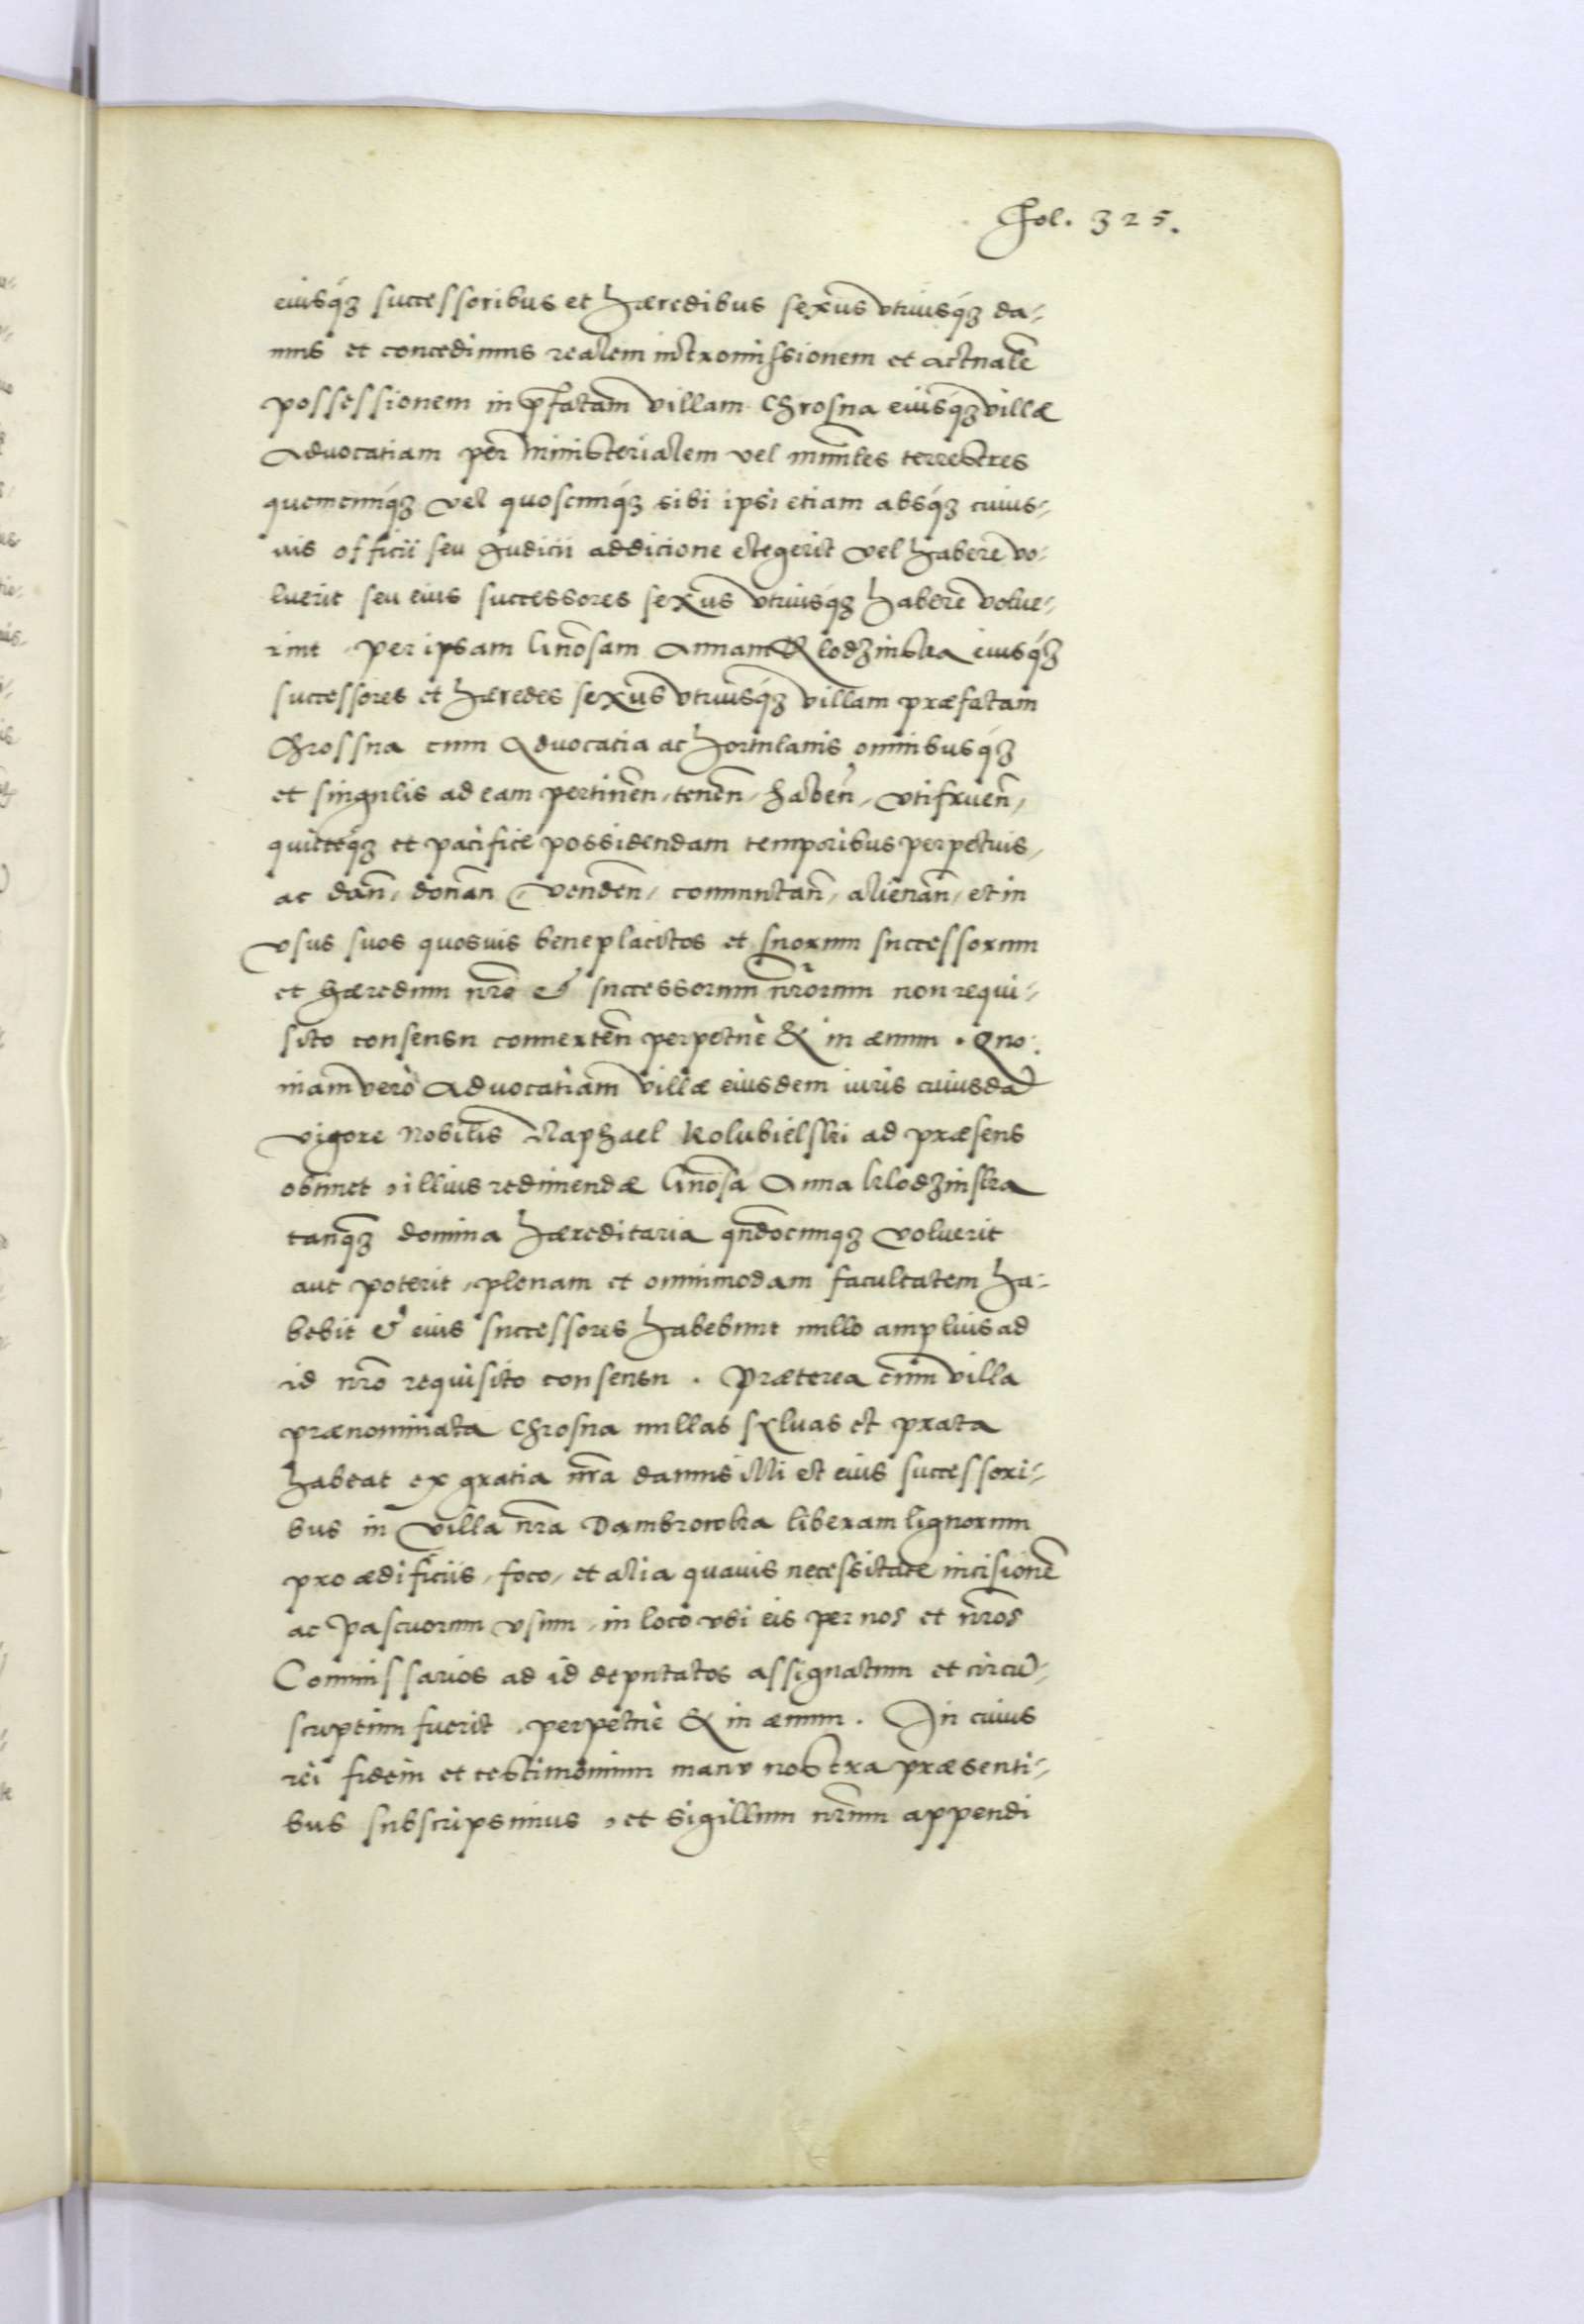 Fol. 325.
eiusq3 successoribus et hæredibus sexus vtriusq3 da-
mus et concedimus realem intromissionem et actualē
possessionem in p̄fatam villam Chrosna eiusq3 villæ
Aduocatiam per Ministerialem vel mīnles terrestres
quemcunq3 vel quoscunq3 sibi ipsi etiam absq3 cuius-
uis officii seu Judicii addicione elegerit vel habere vo-
luerit seu eius successores sexus vtriusq3 habere volue-
rint per ipsam Gnōsam Annam Klodzinska eiusq3
successores et hæredes sexus vtriusq3 villam præfatam
Chrossna cum Aduocatia ac hortulanis omnibusq3
et singulis ad eam pertinēn, tenēn, habēn, vtifruēn,
quieteq3 et pacifice possidendam temporibus perpetuis,
ac dān, donān, vendēn, commutān, alienān, et in
vsus suos quosuis beneplacitos et suorum successorum
et hæredum nr̄o & successorum nr̄orum non requi-
sito consensu conuertēn perpetuè & in æuum. Quo-
niam verò Aduocatiam villæ eiusdem iuris cuiusdā
vigore Nobilis Raphael Kolubielski ad præsens
obtinet, illius redimendæ Gnōsa Anna Klodzinska
tanq3 domina hæreditaria qn̄docunq3 voluerit
aut poterit, plenam et omnimodam facultatem ha-
bebit & eius successores habebunt nullo amplius ad
id nr̄o requisito consensu. Præterea cùm villa
prænominata Chrosna nullas syluas et prata
habeat ex gratia nr̄a damus illi et eius successori-
bus in villa nr̄a Dambrowka liberam lignorum
pro ædificiis, foco, et alia quauis necessitate incisionē
ac pascuorum vsum, in loco vbi eis per nos et nr̄os
Commissarios ad id deputatos assignatum et circū-
scriptum fuerit, perpetuè & in æuum. In cuius
rei fidem et testimonium manu nostra præsenti-
bus subscripsimus, et sigillum nr̄um appendi